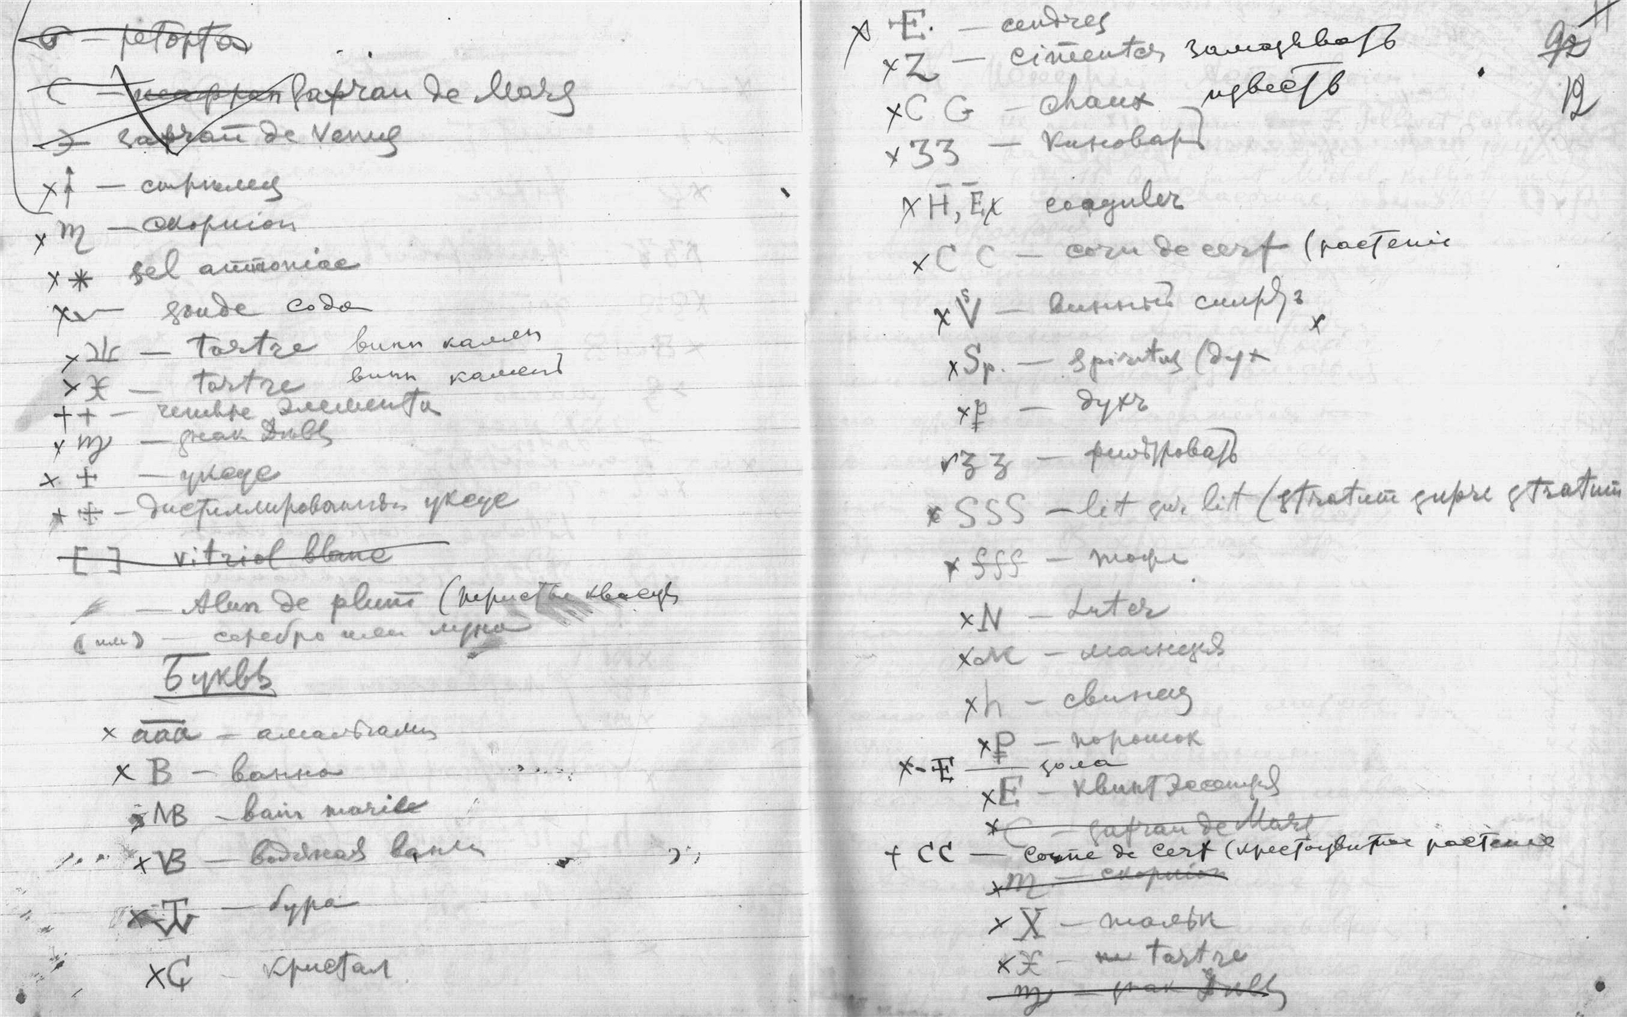 — реторта
C — шафран Safran de Mars
safran de Venus
x — стрелец
x ♏ — скорпион
x * sel ammoniac
x soude сода
x — tartre винн камень
x — tartre винн камень
++ — четыре элемента
x — знак Девы
x + — уксус
x ‡ — дистиллированный уксус
[ ] vitriol blanc
— Alun de plum (перистые квасцы
( или ) — серебро или луна
Буквы
x aaa — амальгама
x B — ванна
MB — bain marie
x VB — водяная ванна
x — бура
x C — кристал
x E. — cendres
x Z — cimenter замазывать
x C G — chaux известь
x 33 — киноварь
x H, Ex coaguler
x C C — corn de cerf (растение
x V — винный спирт
x Sp. — spiritus (дух
x — духъ
33 — фильтровать
x SSS — lit sur lit (stratum supre stratum
x SSS — тоже
x N — Luter
x — магнезия
x h — свинец
x P — порошок
x - E — зола
x E — квинтэссенция
x C — safran de Mars
+ CC — corne de cerf (крестоцветное растение
x ♏ — скорпион
x X — тальк
x — tartre
— знак Девы
92
11
12